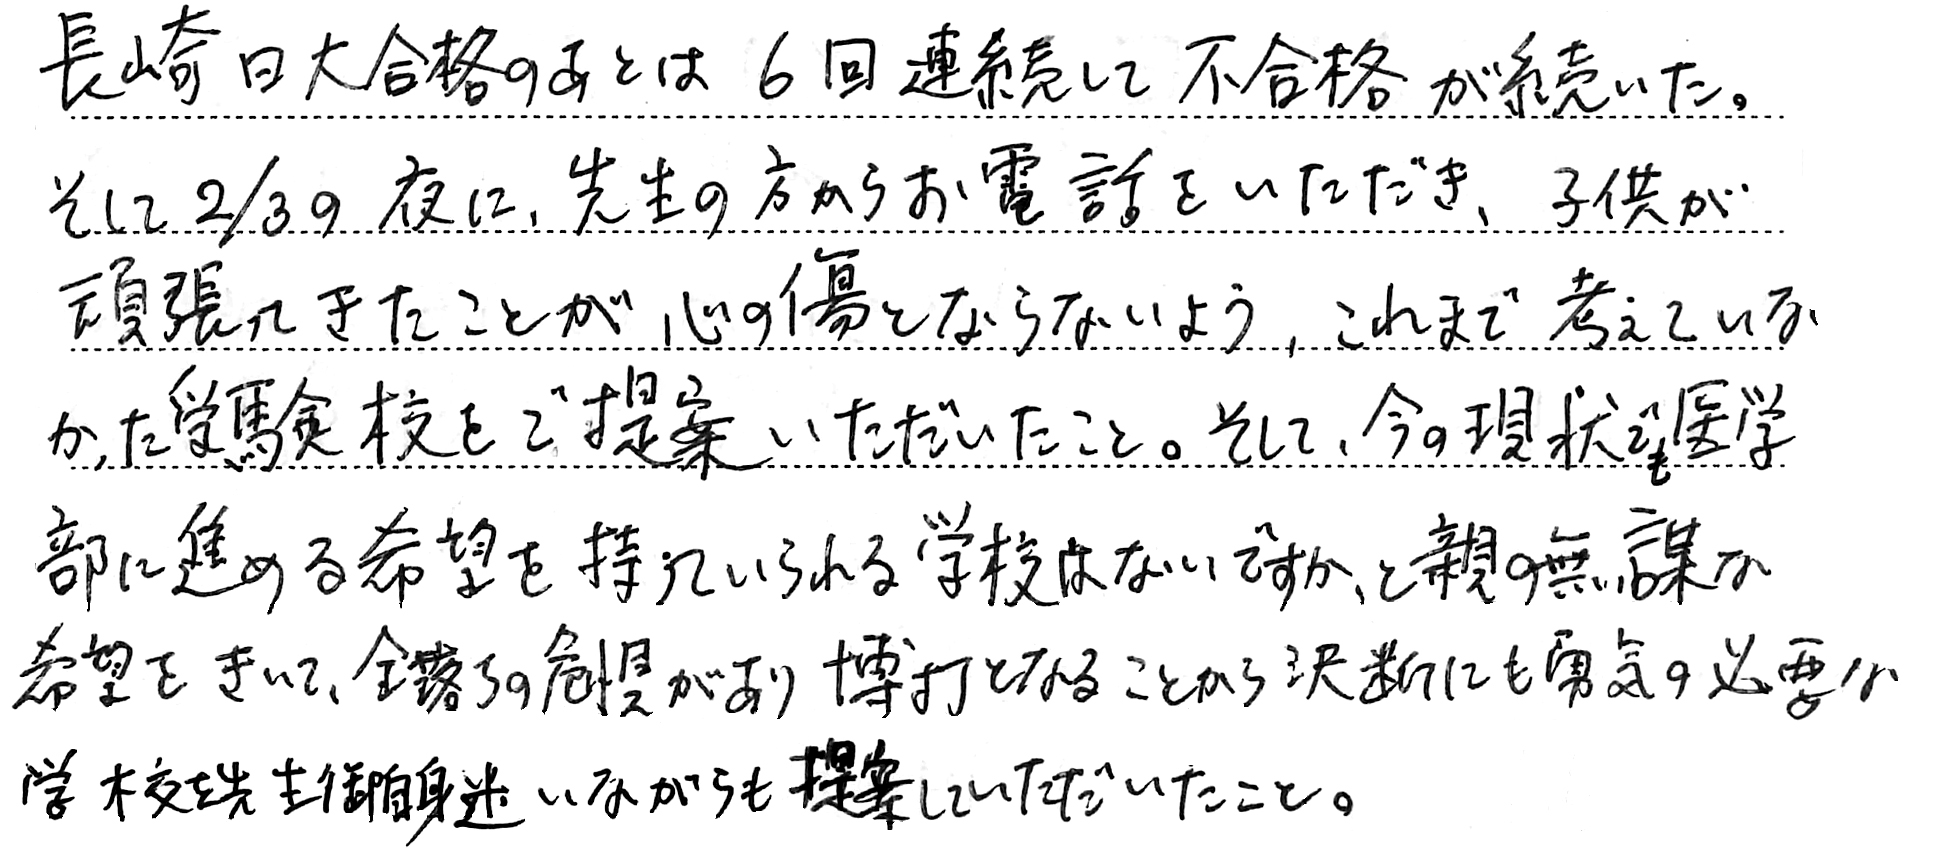 長崎日大合格のあとは6回連続して不合格が続いた。
そして2/3の夜に、先生の方からお電話をいただき、子供が
頑張ってきたことが心の傷とならないよう、これまで考えていな
かった受験校をご提案いただいたこと。そして、今の現状でも医学
部に進める希望を持っていられる学校はないですか、と親の無謀な
希望をきいて、全落ちの危惧があり博打となることから決断にも勇気の必要な
学校を先生御自身迷いながらも提案していただいたこと。